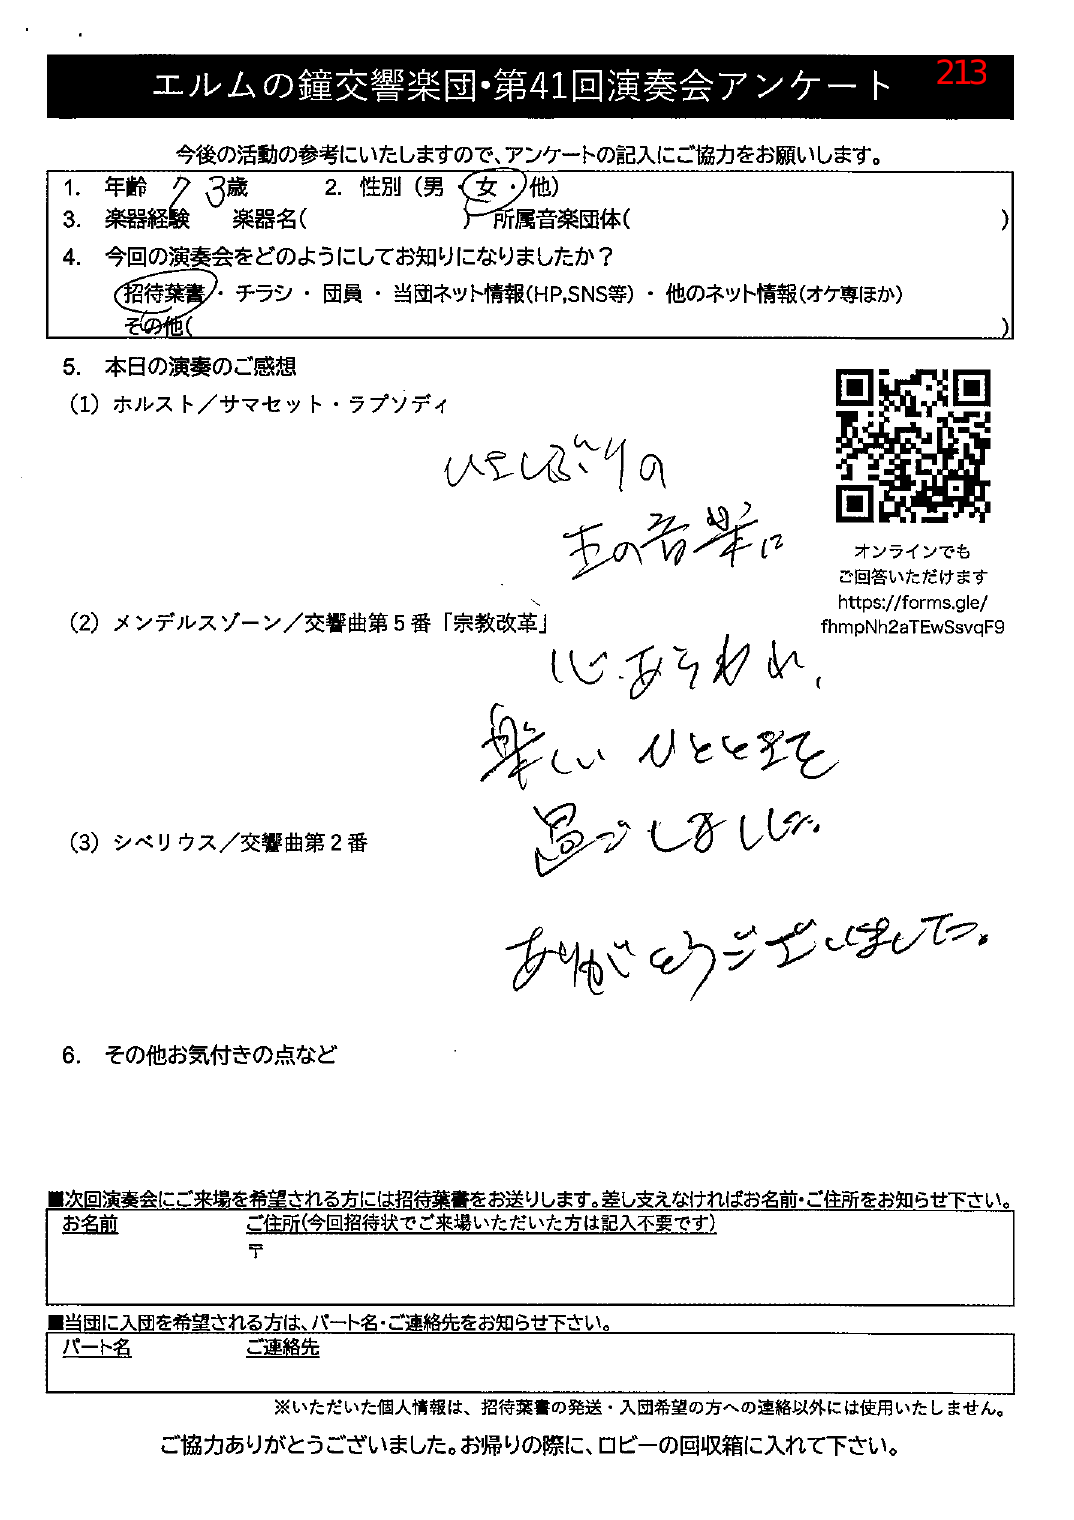 エルムの鐘交響楽団・第41回演奏会アンケート
213
今後の活動の参考にいたしますので、アンケートの記入にご協力をお願いします。
1. 年齢 73歳 2. 性別 (男・女・他)
3. 楽器経験 楽器名( ) 所属音楽団体( )
4. 今回の演奏会をどのようにしてお知りになりましたか？
招待葉書・チラシ・団員・当団ネット情報(HP,SNS等)・他のネット情報(オケ専ほか)
その他( )
5. 本日の演奏のご感想
(1) ホルスト／サマセット・ラプソディ
ひさしぶりの
生の音楽に
オンラインでも
ご回答いただけます
https://forms.gle/
fhmpNh2aTEwSsvqF9
(2) メンデルスゾーン／交響曲第５番「宗教改革」
心あらわれ、
楽しいひとときを
過ごしました。
(3) シベリウス／交響曲第２番
ありがとうございました。
6. その他お気付きの点など
■次回演奏会にご来場を希望される方には招待葉書をお送りします。差し支えなければお名前・ご住所をお知らせ下さい。
お名前 ご住所(今回招待状でご来場いただいた方は記入不要です)
〒
■当団に入団を希望される方は、パート名・ご連絡先をお知らせ下さい。
パート名 ご連絡先
※いただいた個人情報は、招待葉書の発送・入団希望の方への連絡以外には使用いたしません。
ご協力ありがとうございました。お帰りの際に、ロビーの回収箱に入れて下さい。